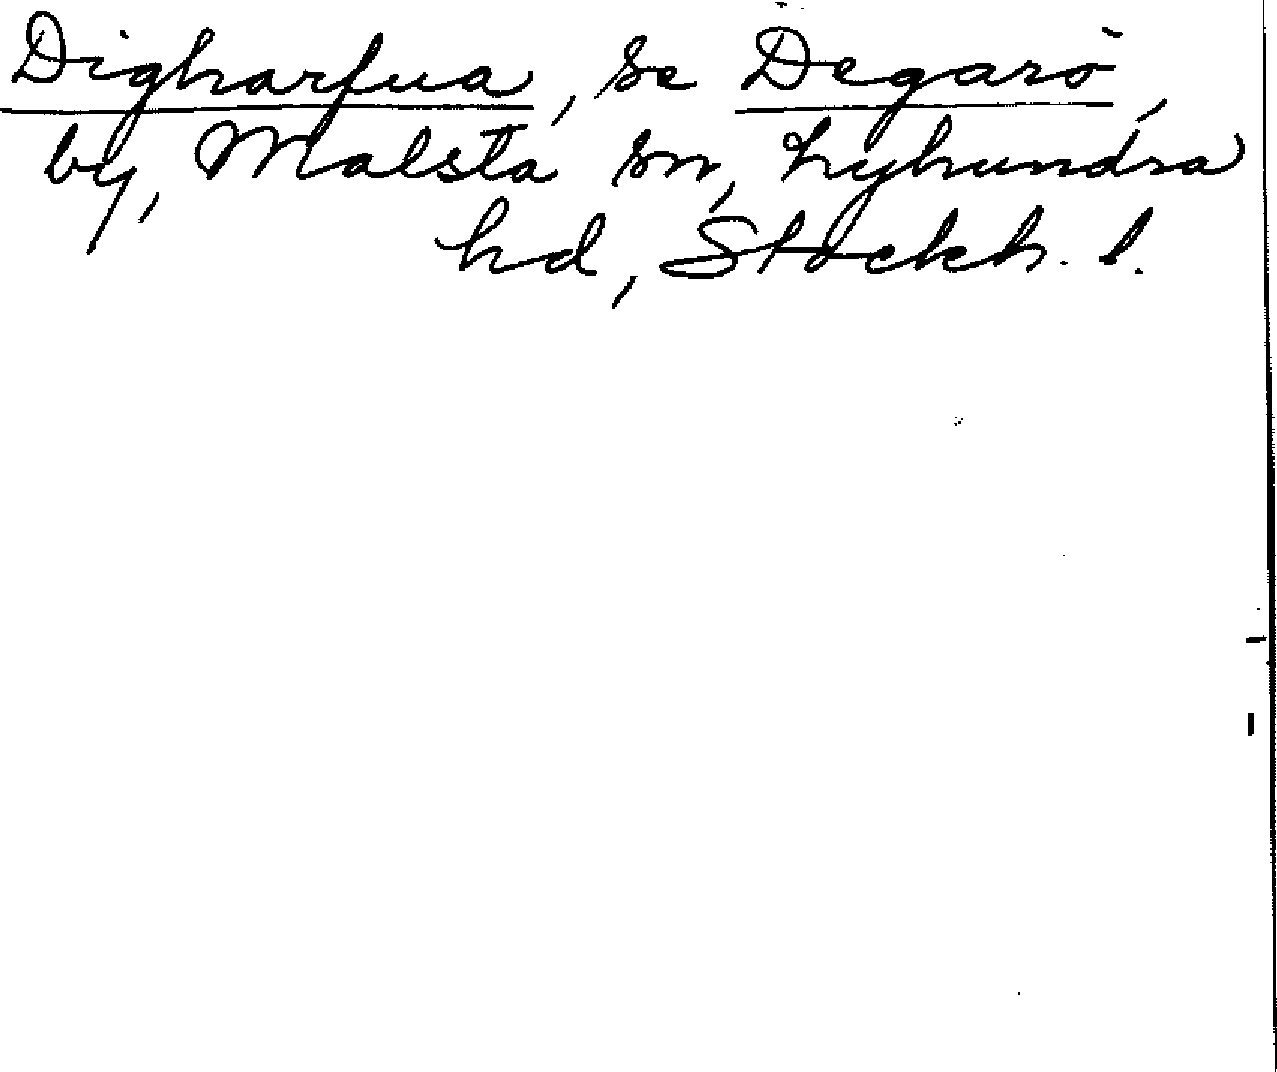 Digharfua, se Degarö,
by, Malsta sn, Lyhundra
hd, Stockh. l.